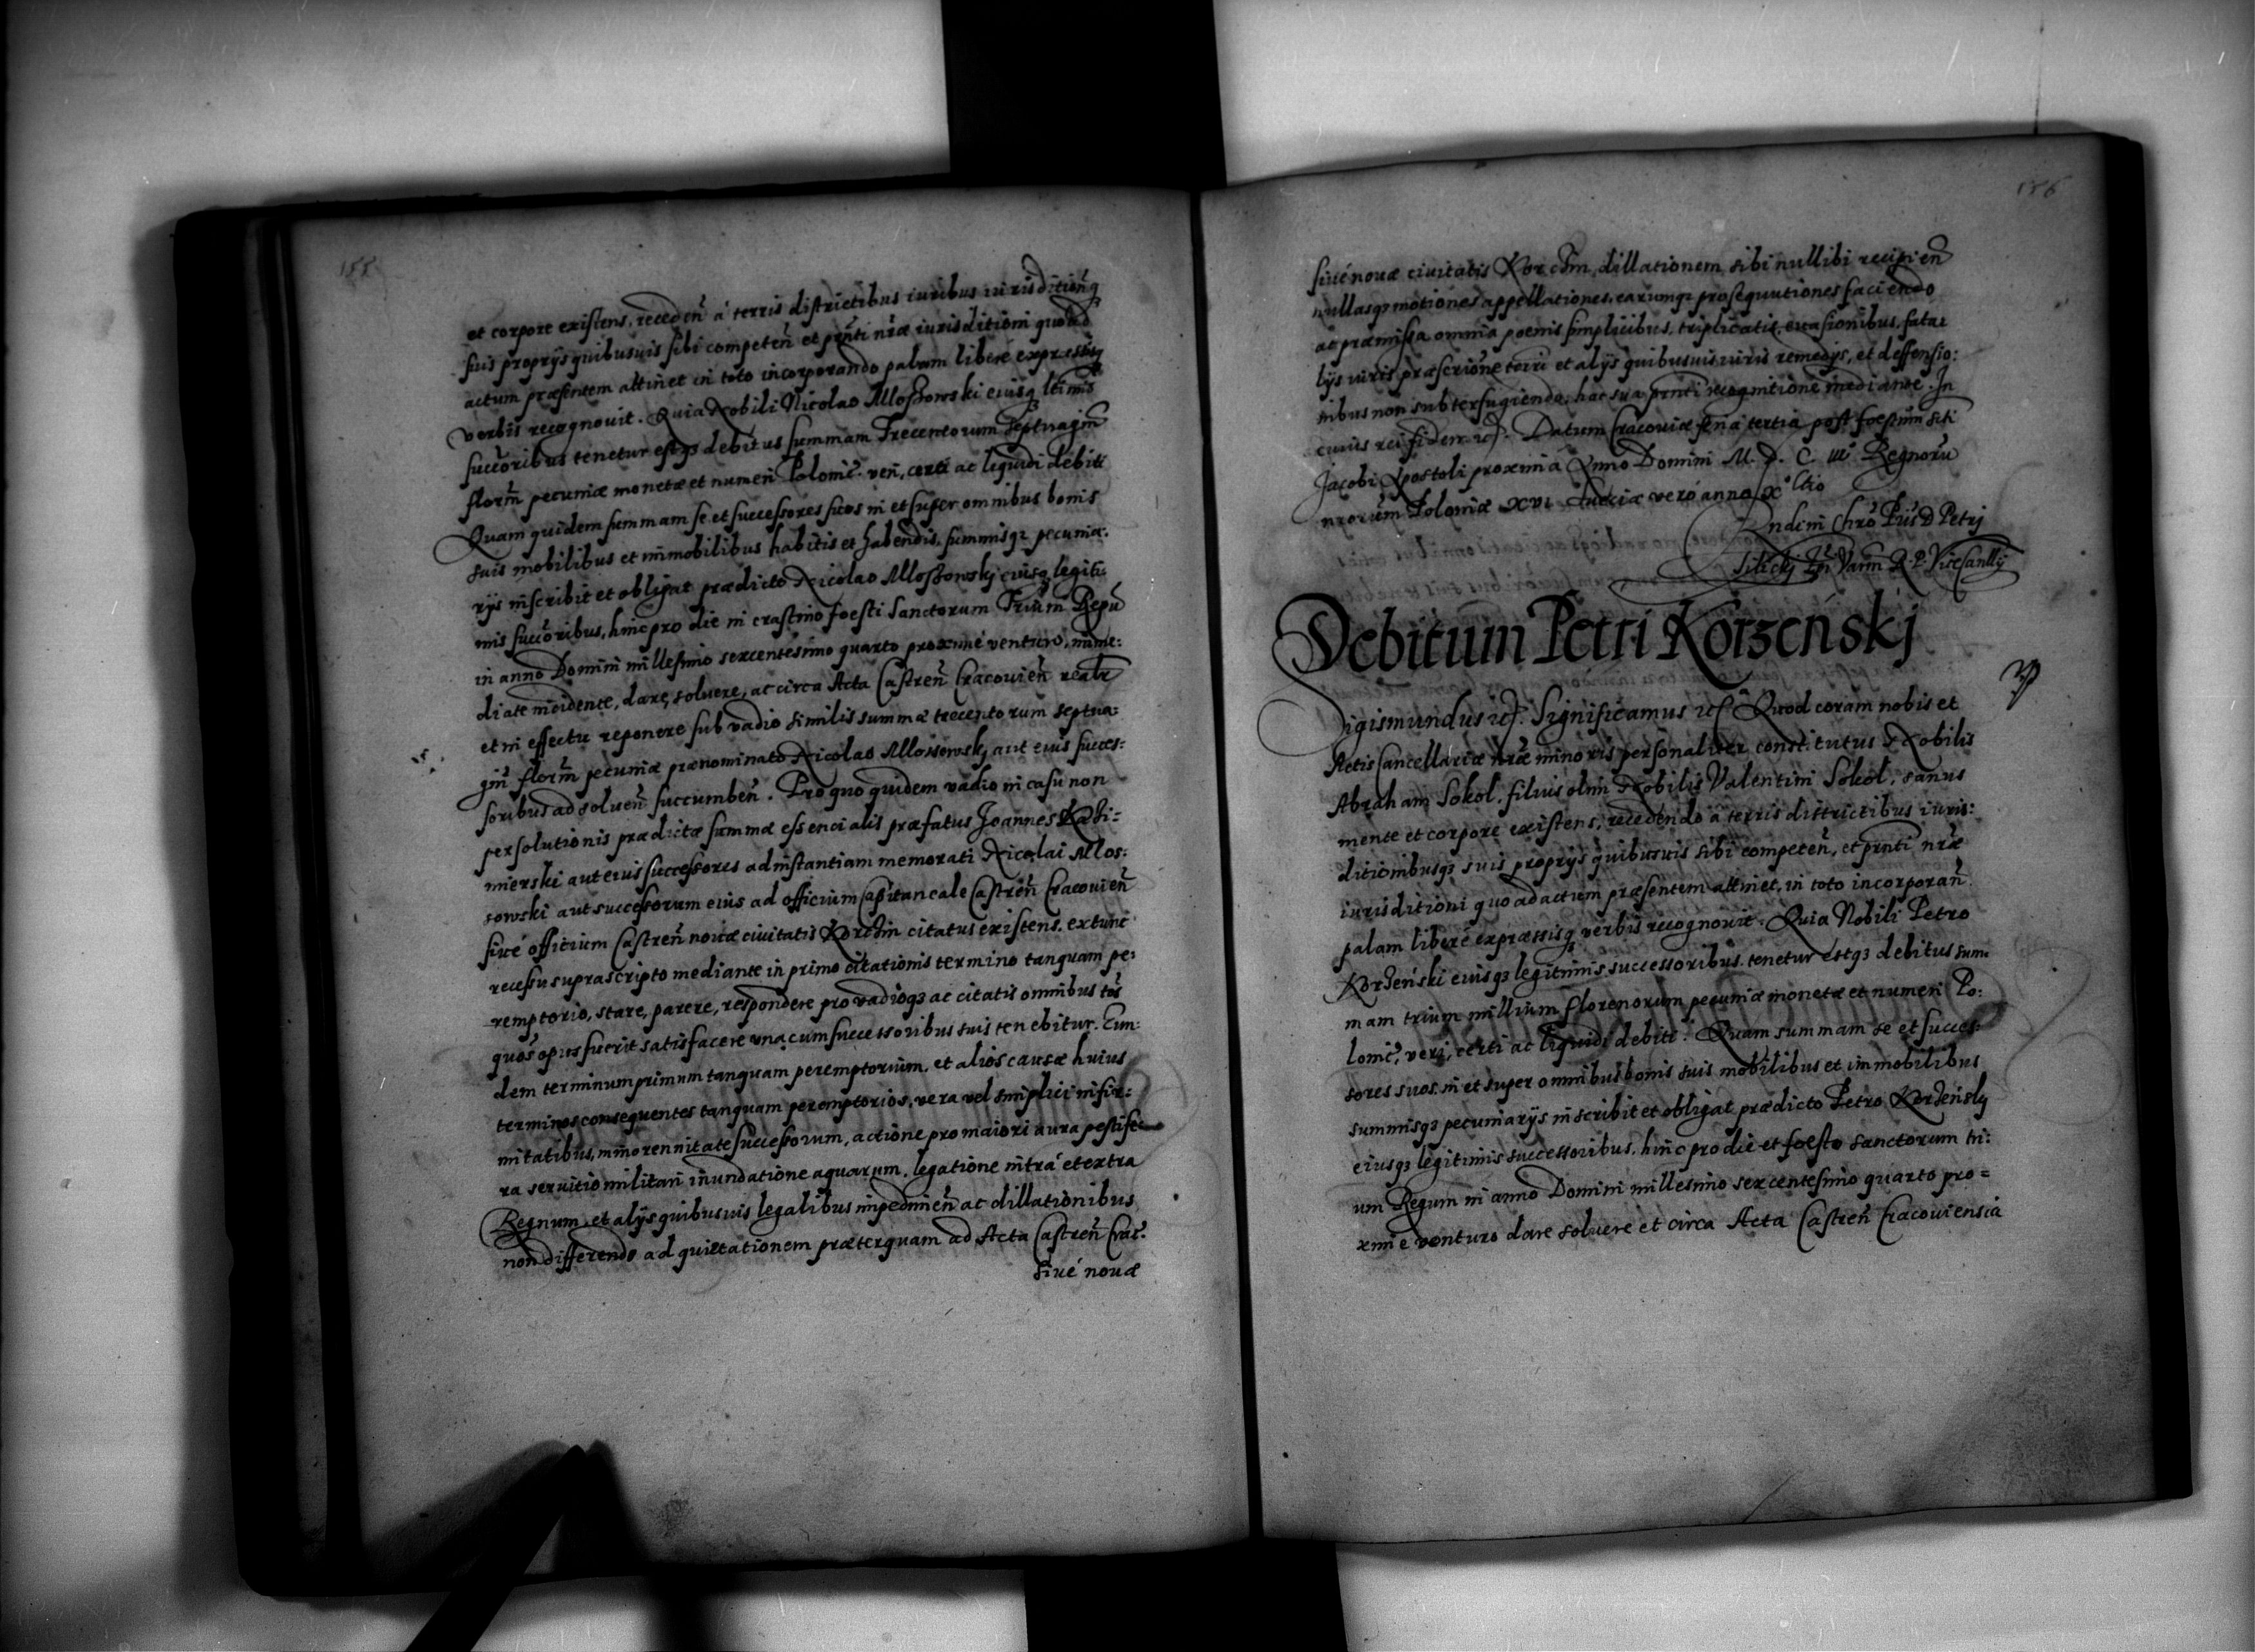 155
et corpore existens, receden̄ á terris districtibus iuribus iurisdition̄q
suis proprÿs quibusuis sibi competen̄ et pnt̄i nr̄æ iurisditioni quoad
actum præsentem attinet in toto incorporando palam liberé expressisq
verbis recognouit. Quia Nobili Nicolao Mossowski eiusq ltīmis
succōribus tenetur estq3 debitus summam Trecentorum Septuagin̄
florn̄ pecuniæ monetæ et numeri Polonic̄. veri, certi ac liquidi debiti
Quam quidem summam se et successores suos in et super omnibus bonis
suis mobilibus et immobilibus habitis et habendis, summisq3 pecunia:
rÿs inscribit et obligat prædicto Nicolao Mossowskj eiusq legiti:
mis succōribus, hinc pro die in crastino foesti Sanctorum Trium Regū
in anno Domini millesimo sexcentesimo quarto proximé venturo, imme:
diate incidente, dare, soluere, ac circa Acta Castren̄ Cracouien̄ realr̄
et in effectu reponere sub vadio similis summæ trecentorum septua:
gin̄ florn̄ pecuniæ prænominato Nicolao Mossowskj aut eius succes:
soribus ad soluen̄ succumben̄. Pro quo quidem vadio in casu non
persolutionis prædictæ summæ essencialis præfatus Joannes Kazi=
mierski aut eius successores ad instantiam memorati Nicolai Mos:
sowski aut successorum eius ad officium Capitaneale Castren̄ Cracouien̄
siué officium Castren̄ nouæ ciuitatis Korczin citatus existens, extunc
recessu suprascripto mediante in primo citationis termino tanquam pe:
remptorio, stare, parere, respondere pro vadioq3 ac citatis omnibus tot̄
quos opus fuerit satisfacere vna cum successoribus suis tenebitur. Eun:
dem terminum primum tanquam peremptorium, et alios causæ huius
terminos consequentes tanquam peremptorios, vera vel simplici infir:
mitatibus, minorennitate successorum, actione pro maiori aura pestife:
ra seruitio militari inundatione aquarum, legatione intrá et extra
Regnum et alÿs quibusuis legalibus impedimen̄ ac dillationibus
non differendo ad quietationem præterquam ad Acta Castren̄ Crac̄.
siué nouæ
156
siué nouæ ciuitatis Korczin, dillationem sibi nullibi recipien̄
nullasq3 motiones appellationes, earumq3 prosequutiones faciendo
ac præmissa omnia poenis simplicibus, triplicatis, euasionibus, fata:
lÿs iuris præscrione terrī et alÿs quibusuis iuris remedÿs, et deffensio:
nibus non subterfugiendo, hac sua pnt̄i recognitione mediante. In
cuius rei fidem etc. Datum Cracouiæ feria tertia post foestum Sct̄i
Jacobi Apostoli proxima Anno Domini M. D. C. III Regnorū
nrorum Poloniæ XVI Sueciæ veró anno X.
Rndi in Chrō Pr̄is D Petrj
Tilickj Epī Varm̄ R. P. Vicecanllÿ
Debitum Petri Korzeńskj
Sigismundus etc. Significamus etc Quod coram nobis et
Actis Cancellariæ nr̄æ minoris personaliter constitutus Nobilis
Abraham Sokol, filius olim Nobilis Valentini Sokol, sanus
mente et corpore existens, recedendo á terris districtibus iuris:
ditionibusq3 suis proprÿs quibusuis sibi competen̄, et pnt̄i nr̄æ
iurisditioni quo ad actum præsentem attinet, in toto incorporan̄
palam liberé expræssisq verbis recognouit. Quia Nobili Petro
Korzeński eiusq3 legitimis successoribus tenetur estq3 debitus sum:
mam trium millium florenorum pecuniæ monetæ et numeri Po:
lonic̄, veri, certi ac liquidi debiti. Quam summam se et succes:
sores suos in et super omnibus bonis suis mobilibus et immobilibus
summisq3 pecuniarÿs inscribit et obligat prædicto Petro Korzeńskj
eiusq3 legitimis successoribus, hinc pro die et foesto sanctorum tri:
um Regum in anno Domini millesimo sexcentesimo quarto pro=
ximé venturo dare soluere et circa Acta Castren̄ Cracouiensia